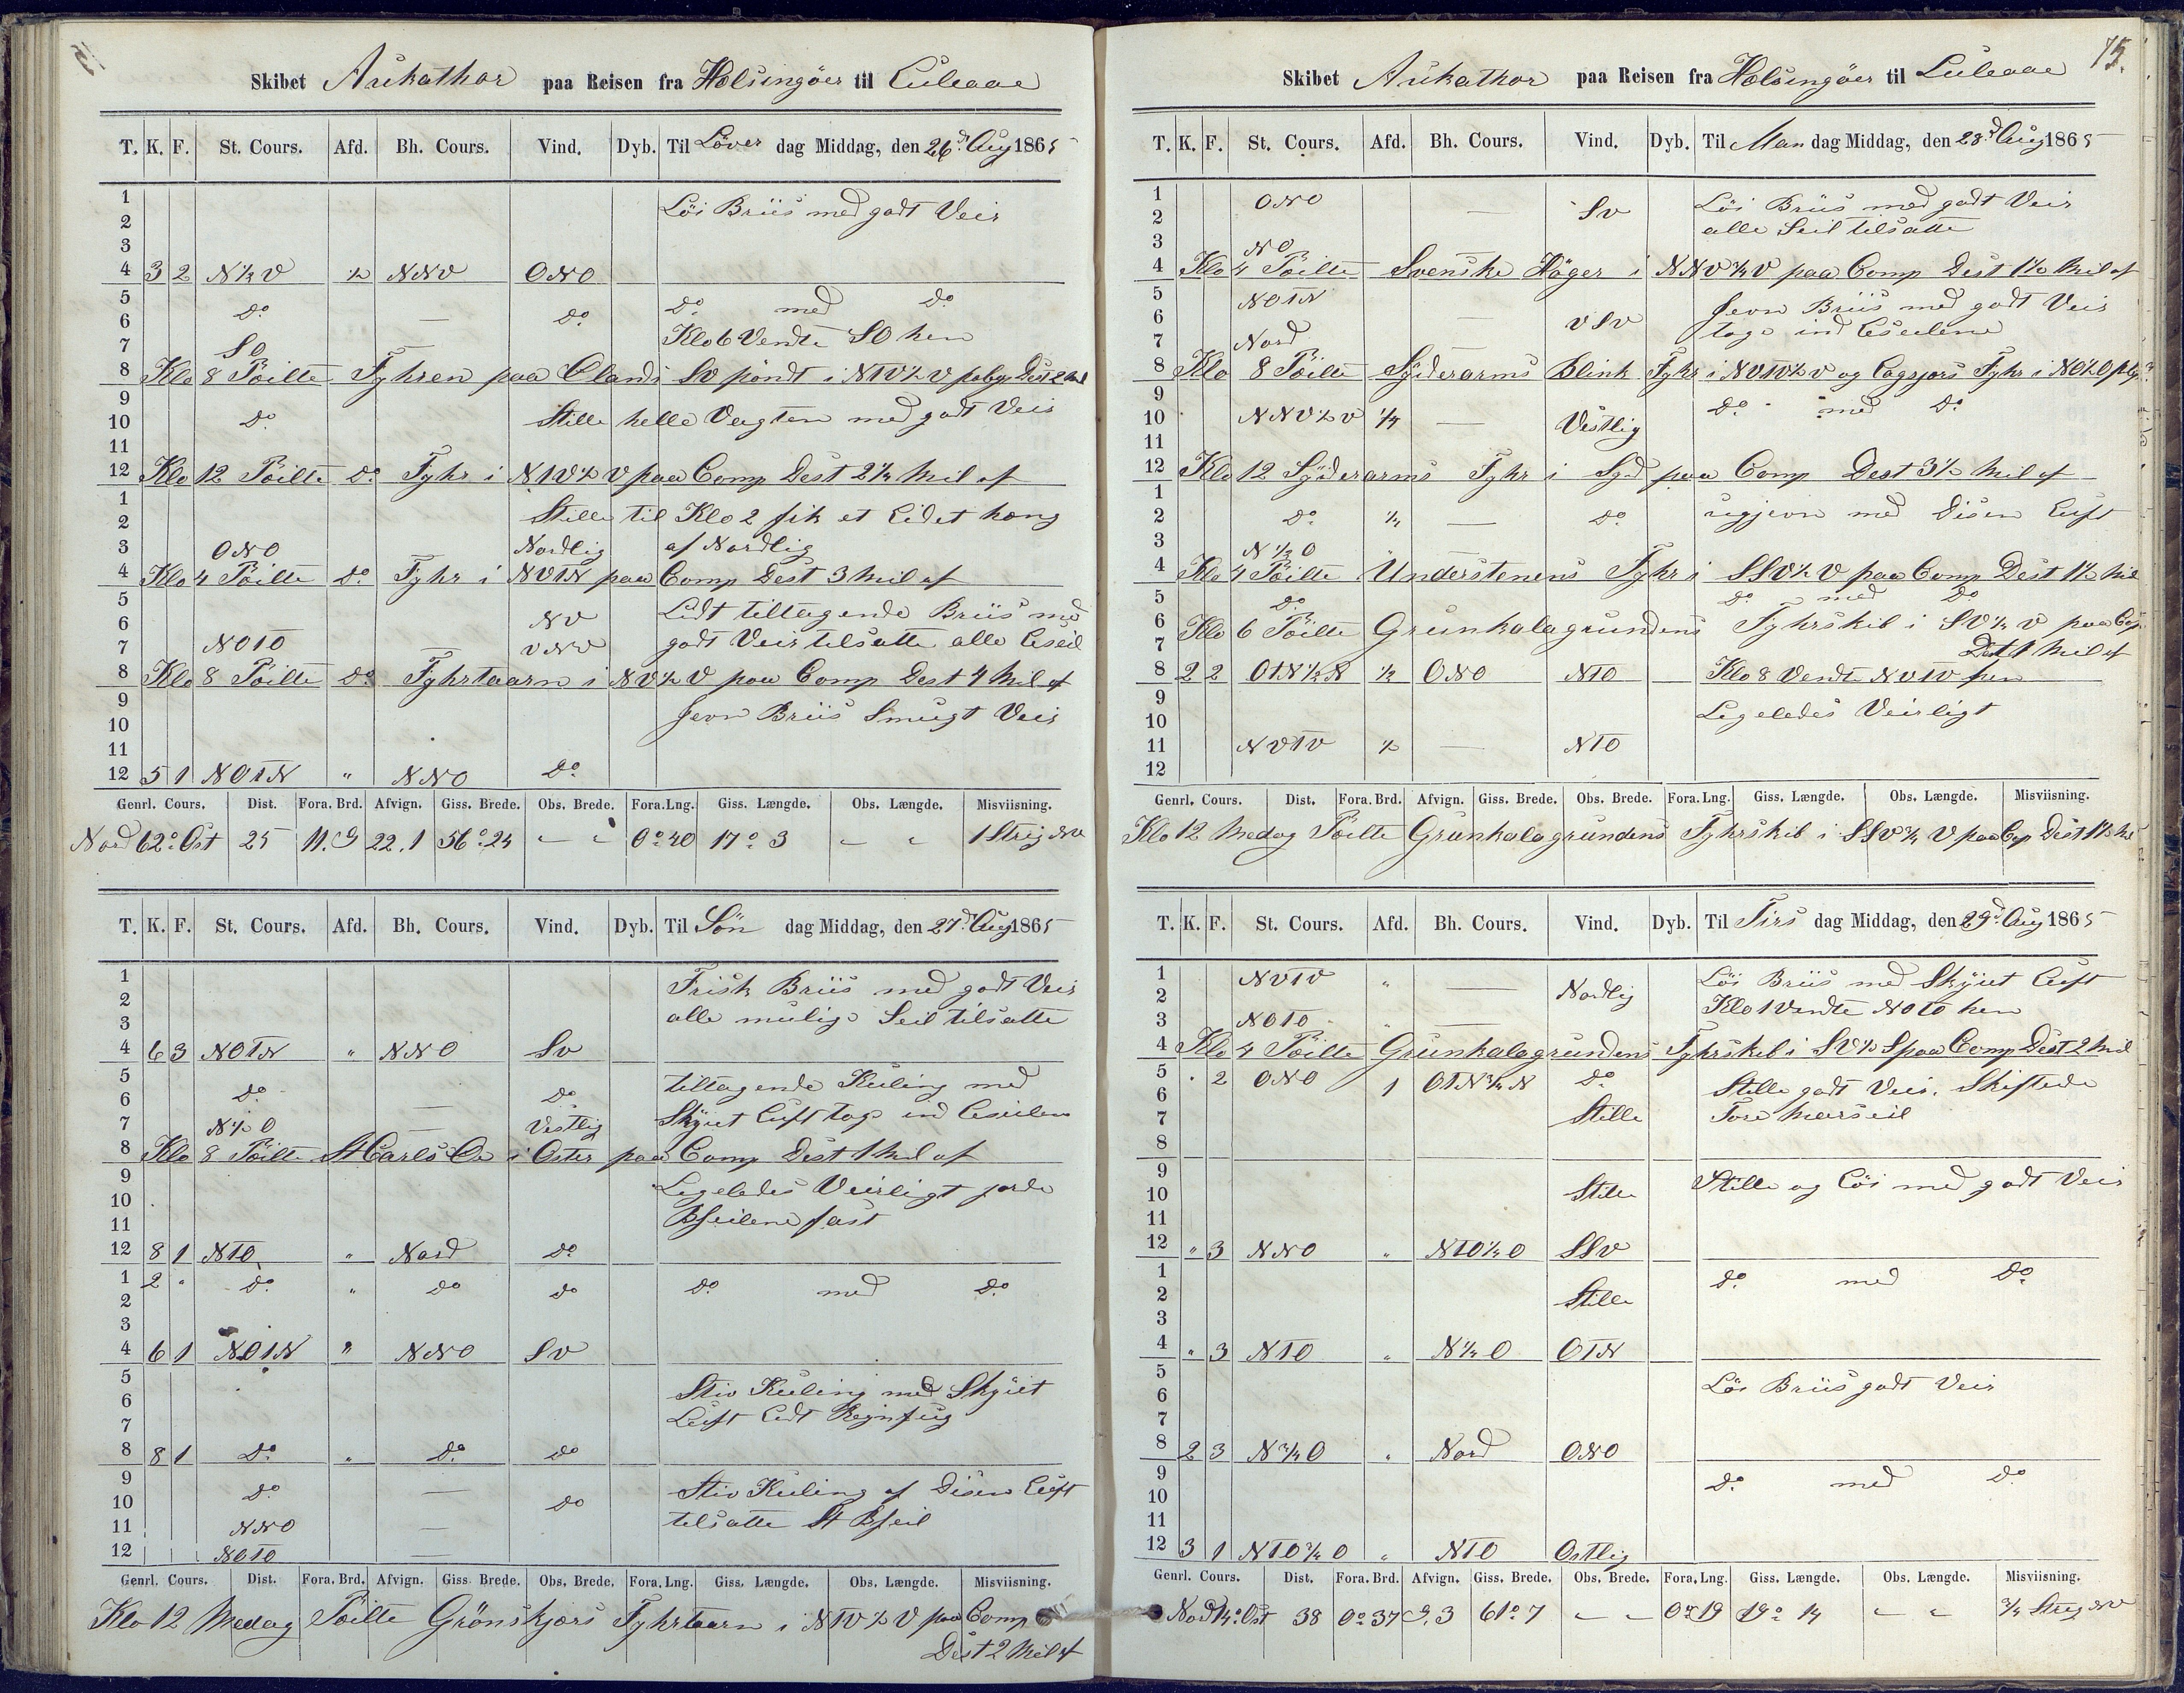 Skibet Arikathor paa Reisen fra Helsingöer til Luleaae
T. K. F. St. Cours. Afd. Bh. Cours. Vind. Dyb. Til Löver dag Middag, den 26d Aug 1865
1 Löi Briis med godt Veir
2
3
4 3 2 N½V ½ NNV ONO
5 do — do do med do
6 Klo 6 Vendte SO hen
7 SO —
8 Klo 8 Peilte Fyhren paa Olands SV pöndt i NTV½V
9
10 do Stille helle Vagten med godt Veir
11
12 Klo 12 Peilte do Fyhr i NTV½V paa Comp Dest 2¼ Mil af
1 Stille til Klo 2 fik et Lidet hæng
2 af Nordlig
3 ONO — Nordlig
4 Klo 4 Peilte do Fyhr i NVTN paa Comp Dest 3 Mil af
5 NV Lidt tiltagende Briis med
6 godt Veir tilsatte alle
7 NOTO — VNV
8 Klo 8 Peilte do Fyhrtaarn i NV½V paa Comp Dest 4 Mil af
9 Jevn Briis Smugt Veir
10
11
12 5 1 NOTN " NNO do
Genrl. Cours. Dist. Fora. Brd. Afvign. Giss. Brede. Obs. Brede. Fora.Lng. Giss. Længde. Obs. Længde. Misviisning.
Nord 62° Ost 25 11.9 22.1 56°24 - - 0°40 17°3 - - 1 Streg NV
T. K. F. St. Cours. Afd. Bh. Cours. Vind. Dyb. Til Sön dag Middag, den 27d Aug 1865
1 Frisk Briis med godt Veir
2 alle mulige Seil tilsatte
3
4 6 3 NOTN " NNO SV
5 do — do tiltagende Kuling med
6 Skyiet Luft tog ind
7 N½O — Vestlig
8 Klo 8 Peilte St Carls Oe i Oster paa Comp Dest 1 Mil af
9 Legeledes Veirligt
10 fast
11
12 8 1 NTO " Nord do
1 2 " do " do do do med do
2
3
4 6 1 NOTN " NNO SV
5 Stiv Kuling med Skyiet
6 Luft Lidt Regnfug
7
8 8 1 do " do do
9 do — do Stiv Kuling af Disen Luft
10 tilsatte St
11 NNO —
12 NOTO —
Genrl. Cours. Dist. Fora. Brd. Afvign. Giss. Brede. Obs. Brede. Fora. Lng. Giss. Længde. Obs. Længde. Misviisning.
Klo 12 Medag Peilte Grönskjærs Fyhrtaarn i NTV½V paa Comp
Dest 2 Mil af
75.
Skibet Arikathor paa Reisen fra Helsingöer til Luleaae
T. K. F. St. Cours. Afd. Bh. Cours. Vind. Dyb. Til Man dag Middag, den 28d Aug 1865
1 ONO — SV Löi Briis med godt Veir
2 alle Seil tilsatte
3 NO
4 Klo 4 Peilte Svenske Höger i NNV¾V paa Comp Dest 1½ Mil af
5 NOTN — VSV Jevn Briis med godt Veir
6 toge ind
7 Nord —
8 Klo 8 Peilte Syderarms Blink Fyhr i NVTV½V og Lagsjærs Fyhr i
9
10 NNV½V ¼ — Vestlig do med do
11
12 Klo 12 Syderarms Fyhr i Syd paa Comp Dest 3½ Mil af
1
2 do ¼ — do ugjevn med Disen Luft
3 N½O —
4 Klo 4 Peilte Understenens Fyhr i SSV½V paa Comp Dest 1½ Mil
5 do do med do
6 Klo 6 Peilte Grunkalagrundens Fyhrskib i SV½V paa Cop
7 Dest 1 Mil af
8 2 2 OTN½N ½ ONO NTO Klo 8 Vendte NVTV hen
9 Legeledes Veirligt
10
11 NVTV ½ — NTO
12
Genrl. Cours. Dist. Fora. Brd. Afvign. Giss. Brede. Obs. Brede. Fora. Lng. Giss. Længde. Obs. Længde. Misviisning.
Klo 12 Medag Peilte Grunkalagrundens Fyhrskib i SSV¾V paa Cop Dest 1½ Mil
T. K. F. St. Cours. Afd. Bh. Cours. Vind. Dyb. Til Tirs dag Middag, den 29d Aug 1865
1 NVTV " — Nordlig Löi Briis med Skyiet Luft
2 Klo 1 Vendte NOTO hen
3 NOTO " —
4 Klo 4 Peilte Grunkalagrundens Fyhrskib i SV½S paa Comp Dest 2 Mil
5 " 2 ONO 1 OTN¾N do Stille godt Veir. Skiftede
6 Fore Mærseil
7 Stille
8
9 Stille og Löi med godt Veir
10 Stille
11
12 " 3 NNO " NTO¼O SSV
1 do med do
2 Stille
3
4 " 3 NTO " N¼O OTN
5 Löi Briis godt Veir
6
7
8 2 3 N¾O " Nord ONO
9 do med do
10
11
12 3 1 NTO¾O " NTO Ostlig
Genrl. Cours. Dist. Fora. Brd. Afvign. Giss. Brede. Obs. Brede. Fora. Lng. Giss. Længde. Obs. Længde. Misviisning.
Nord 14° Ost 38 0°37 9.3 61°7 - - 0°19 19°14 - - ¾ Streg NV